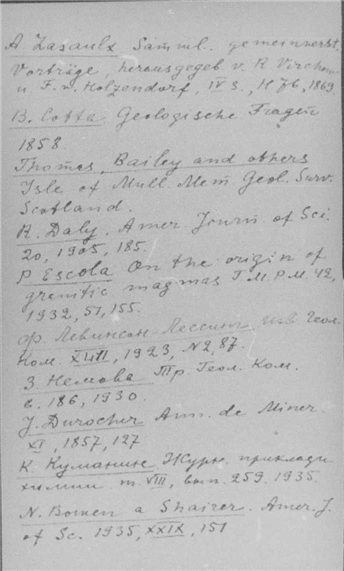 A. Lasaulx Samml. gemeinverst.
Vorträge, herausgegeb v. R. Virchow
u. F. v. Holzendorf, IV S., H 76, 1869
B. Cotta Geologische Fragen
1858.
Thomas, Bailey and others
Isle of Mull. Mem Geol. Surv.
Scotland.
R. Daly. Amer. Journ. of Sci.
20, 1905, 185.
P Escola On the origin of
granitic magmas T.M.P.M. 42,
1932, 51, 155.
Ф. Левинсон Лессинг Изв Геол.
Ком. XLIII, 1923, N2, 87.
З. Немова Тр Геол. Ком.
в. 186, 1930.
J. Durocher Ann. de Miner.
XI, 1857, 127
К. Куманин Журн. приклади
химии т. VIII, вып. 259. 1935.
N. Bowen a Shairer. Amer. J.
of Sc. 1935, XXIX, 151